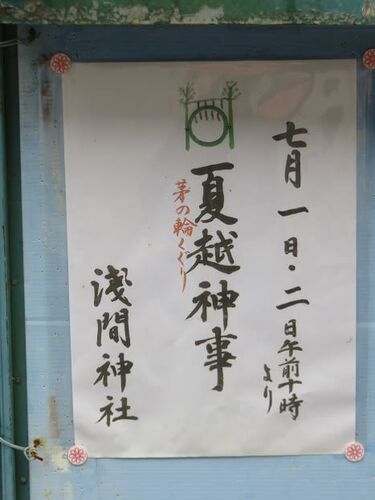 七月一日・二日午前十時より
夏越神事
茅の輪くぐり
浅間神社